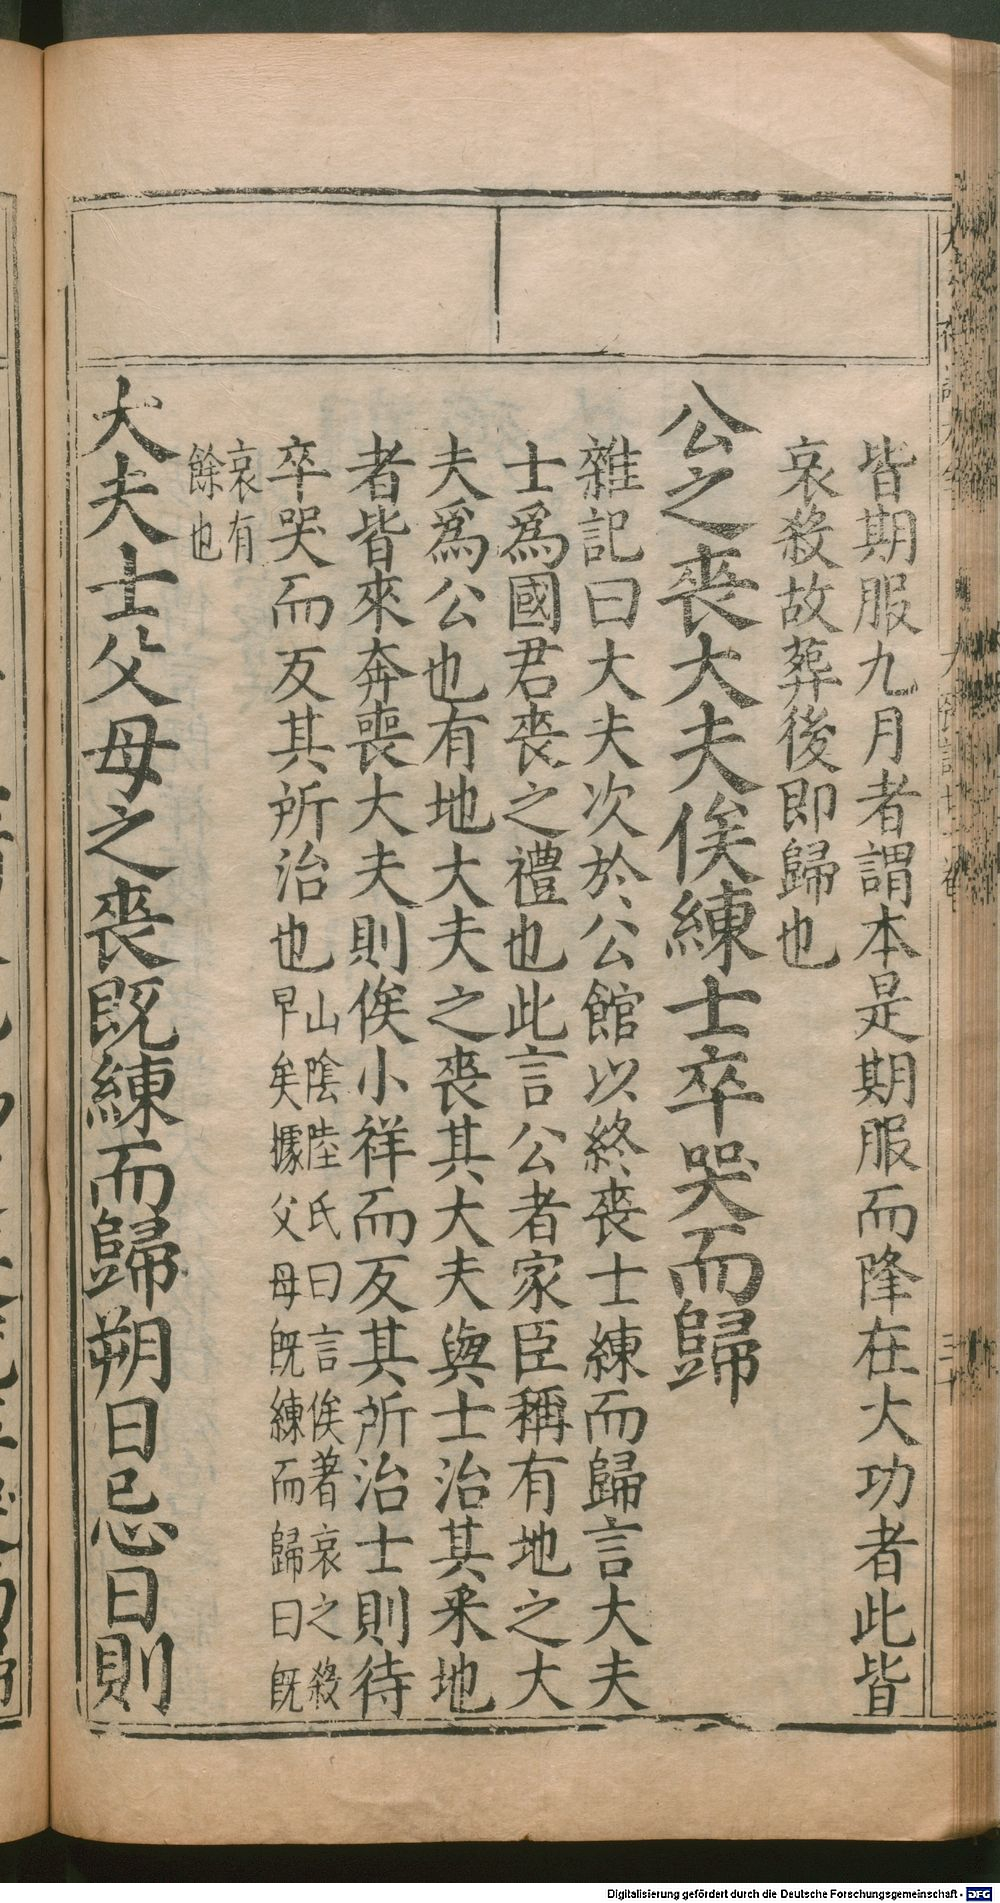 皆期服九月者謂本是期服而降在大功者此皆
哀殺故葬後即歸也
公之喪大夫俟練士卒哭而歸
雜記曰大夫次於公館以終喪士練而歸言大夫
士爲國君喪之禮也此言公者家臣稱有地之大
夫爲公也有地大夫之喪其大夫與士治其采地
者皆來奔喪大夫則俟小祥而反其所治士則待
卒哭而反其所治也
山陰陸氏曰言俟著哀之殺
早矣據父母既練而歸曰既
哀有
餘也
大夫士父母之喪既練而歸朔日忌日則
Digitalisierung gefördert durch die Deutsche Forschungsgemeinschaft - DFG